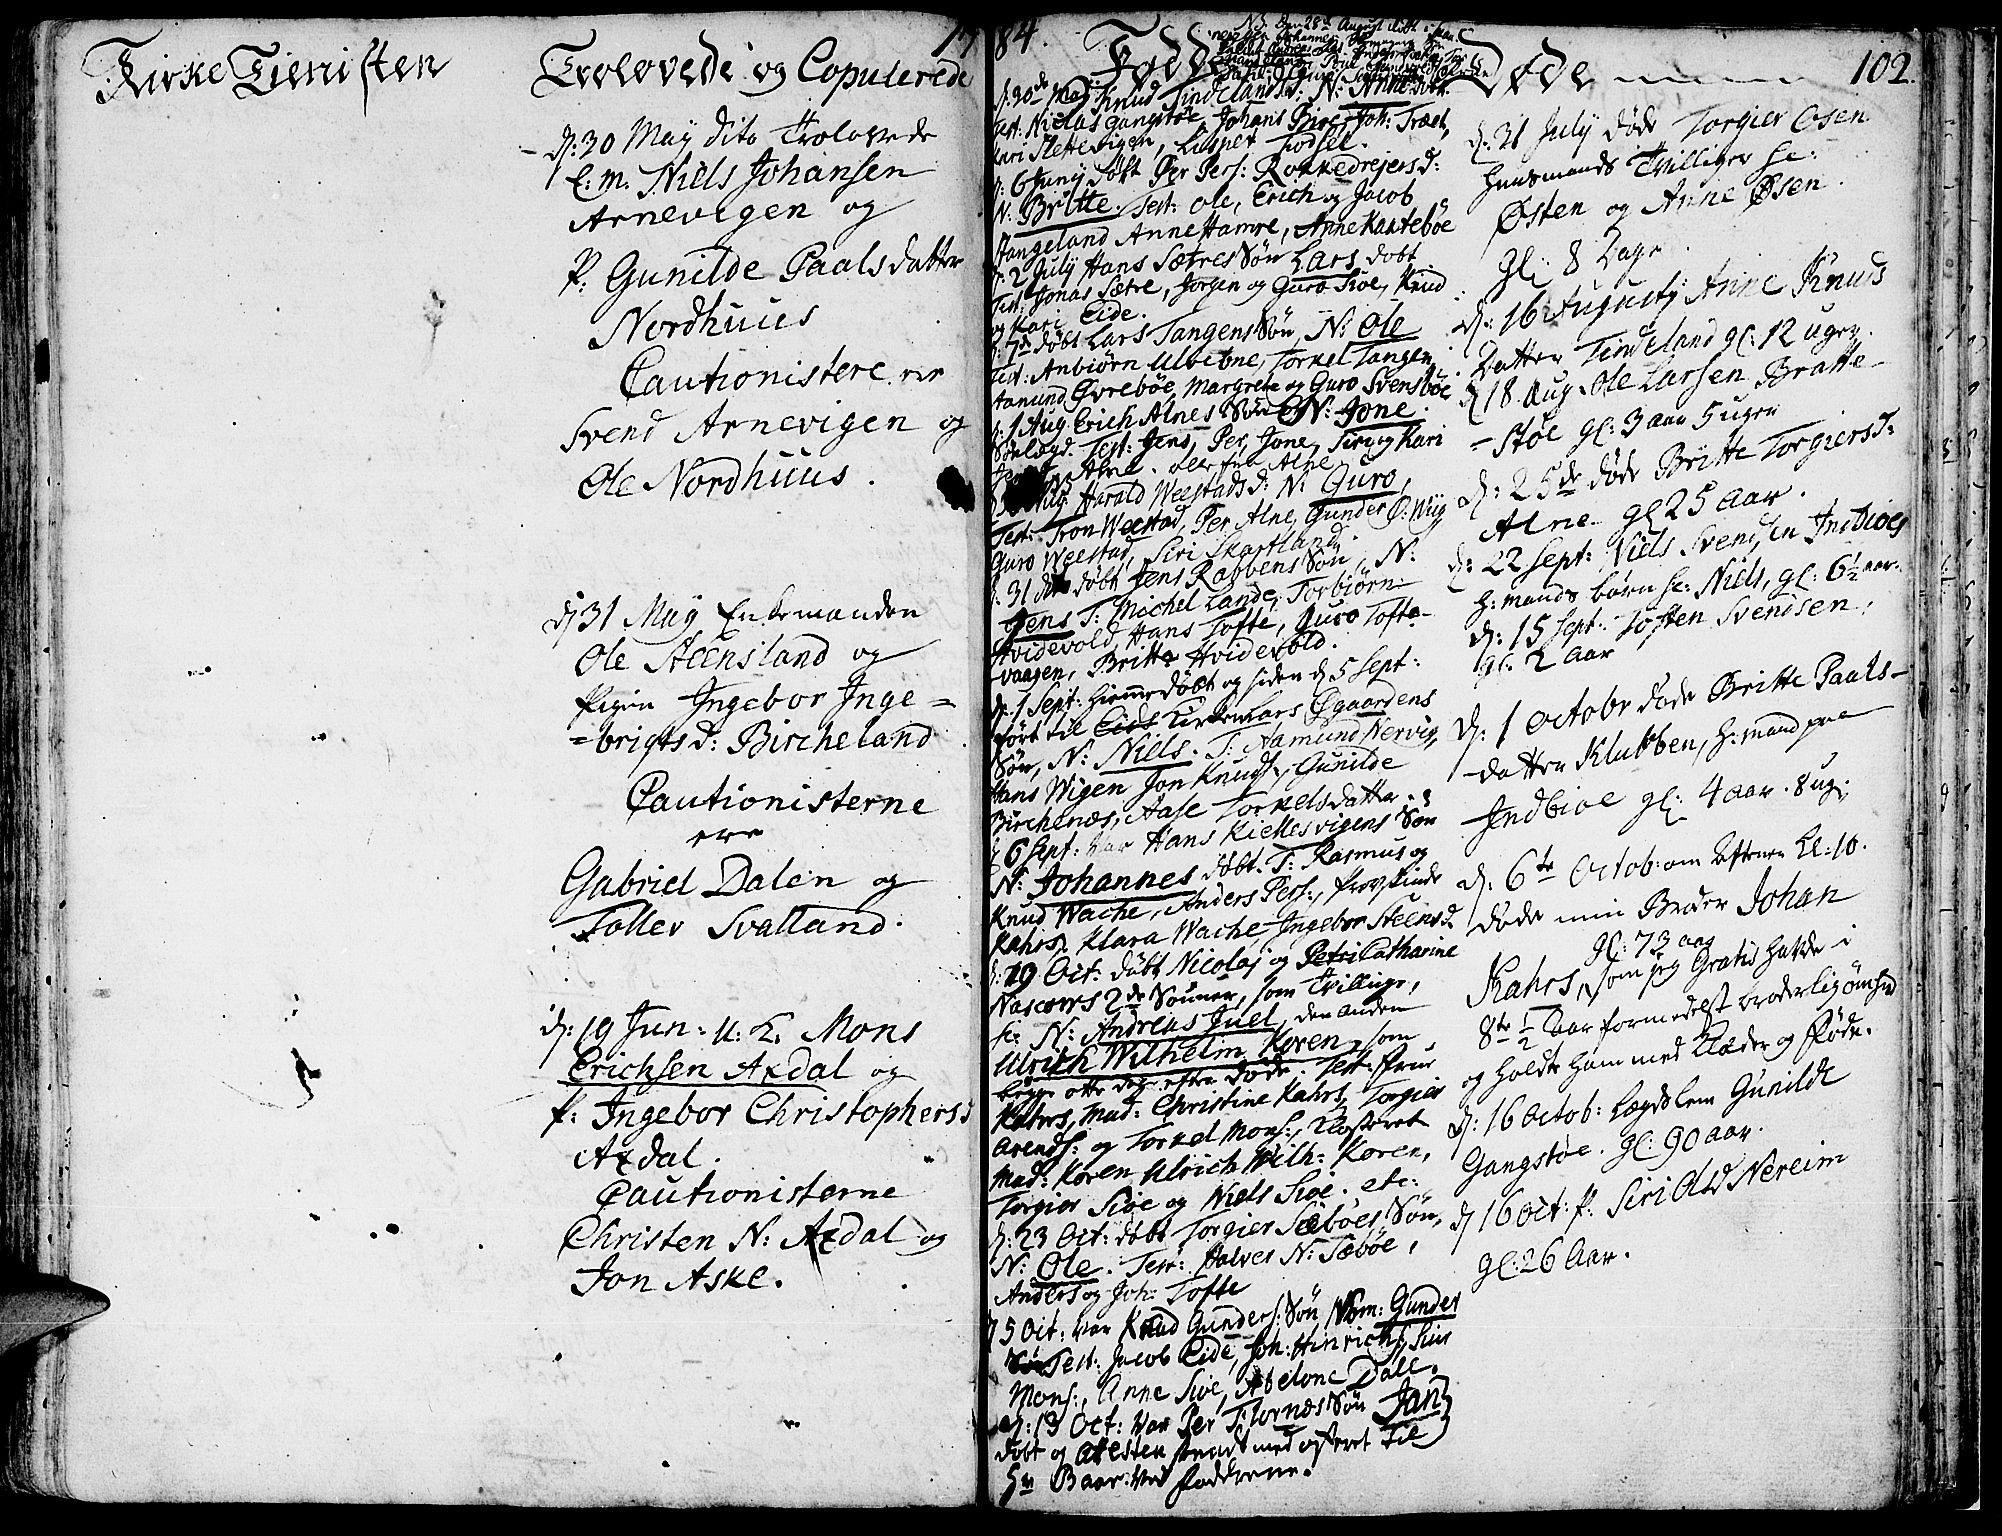 Kirke Tienisten
Trolovede og Copulerede
1784.
Fødde
Døde
102.
d: 30 May dito Trolovede
E: M. Niels Johansen
Arnevigen og
P: Gunilde Paalsdatter
Nordhuus
Cautionistere ere
Svend Arnevigen og
Ole Nordhuus.
d 31 May Enkemanden
Ole Steensland og
Pigen Ingebor Inge=
=brigtsd: Bircheland
Cautionisterne
ere
Gabriel Dalen og
Tollev Svalland.
d: 19 Jun: u. K. Mons
Erichsen Axdal og
P: Ingebor Christophersd
Axdal.
Cautionisterne
Christen N: Axdal og
Jon Aske.
Knud Tindelands d: N: Anne
Test: Niclas Gangstøe, Johans Broe, Joh: Træet,
Kari Slettevigen, Lispet Todsel.
d: 6 Junij døbt Per Pers: Rokkedrejers d:
N: Britte. Test: Ole, Erich og Jacob
Hangeland Anne Hamre, Anne Kaatebøe
d: 2 July Hans Sætres Søn Lars døbt
Test: Jonas Sætre, Jørgen og Guro Sioe, Knud
og Kari Eide.
d: 7de døbt Lars Tangens Søn, N: Ole
Test: Anbiørn Ulvebne, Torkel Tangen
Aamund Øvrebøe, Margrete og Guro Svensbøe
d: 1 Aug. Erich Alnes Søn N: Jone.
Test: Jens, Per, Jone, Siri og Kari
Alne.
Harald Weestads d: N: Guro,
Test: Tron Weestad, Per Alne, Gunder Ø: Wiig
Guro Weestad, Siri Skartland.
d. 31 døbt Jens Rabbens Søn, N:
Jens T: Michel Lande, Torbiørn
Hvidevold, Hans Tofte, Guro Tofte-
vaagen, Britte Hvidevold.
d: 1 Sept: hiemme døbt og siden d 5 Sept:
ført til Eids Kirke Lars Øgaardens
Søn, N: Niels. T: Aamund Nervig,
Hans Wigen Jon Knuds:, Gunilde
Birchenæs, Aase Torkelsdatter.
d 6 Sept: var Hans Kiellesvigens Søn
N: Johannes døbt. T: Rasmus og
Knud Wache, Anders Pers:, Provstinde
Kahrs, Klara Wache, Ingebor Steensd.
d: 19 Oct: døbt Nicolaj og Petri Catharine
Nascows 2de Sønner, som Tvillinge,
N: Andreas Juel, den anden
Ulrich Wilhelm Koren, som
begge otte dage efter døde. Test: Frue
Kahrs, Mad: Christine Kahrs, Torgier
Arends: og Torkel Mons:, Klosteret
Mad: Koren Ulrich Wilh: Koren,
Torgier Sioe og Niels Sioe. etc:
d: 23 Oct: døbt Torgier Sæbøes Søn,
N: Ole. Test: Halver N: Sæbøe,
Anders og Joh: Tofte
d 5 Oct: var Knud Gunders: Søn, Nom: Gunder
Test: Jacob Eide, Joh: Hinrichs, Siur
Mons:, Anne Sioe, Abelone Dale.
d: 13 Oct: var Per Tiornæs Søn Jan
døbt og attesten sendt med offeret til
Hr Baar. ved Fadderene.
d: 31 July døde Torgier Osen
Huusmands Tvillinger
Østen og Anne Øsen.
gl: 8 Dage.
d: 16 Augusty Anne Knuds
Datter Tindeland gl: 12 uger.
d 18 Aug. Ole Larsen Bratte-
-støe gl: 3 aar 5 uger
d: 25de døde Britte Torgiersd:
Alne gl 25 Aar.
d: 22 Sept: Niels Svendsen Indbioes
H: mands barn Niels, gl: 6½ aar.
d: 15 Sept: Tosten Svendsen,
gl: 2 Aar
d: 1 Octobr døde Britte Paals-
datter Klubben, H: mand paa
Indbioe gl: 4 aar. 8 ug:
d: 6te Octob: om Aftenen Kl: 10.
døde min Broder Johan
gl: 73 aar
Kahrs, som jeg Gratis hafde i
8te ½ Aar formedelst broderlig ømhed
og holdt ham med Klæder og Føde.
d: 16 Octob: Lægdslem Gunilde
Gangstøe. gl: 90 aar.
d 16 Oct: P. Siri Old Nereim
gl: 26 Aar.